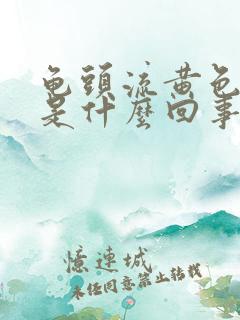 龟頭流黄色
是什麽回事
憶連城
未经同意禁止转载